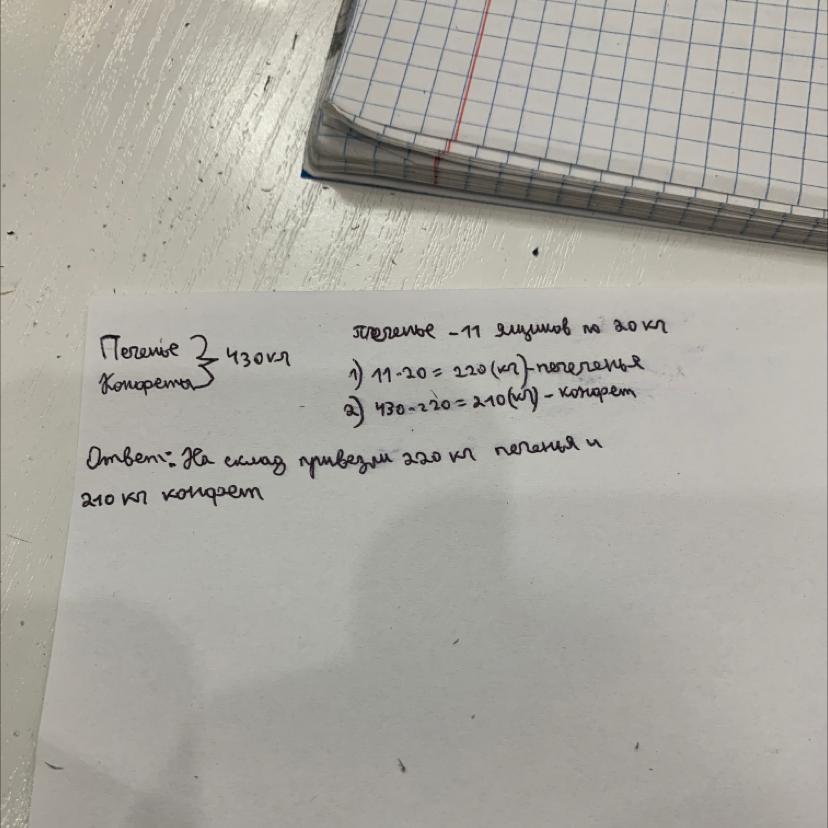 Печенье } 430 кг
Конфеты
печенье - 11 ящиков по 20 кг
1) 11·20 = 220 (кг) - печеченья
2) 430-220 = 210 (кг) - конфет
Ответ: На склад привезли 220 кг печенья и
210 кг конфет